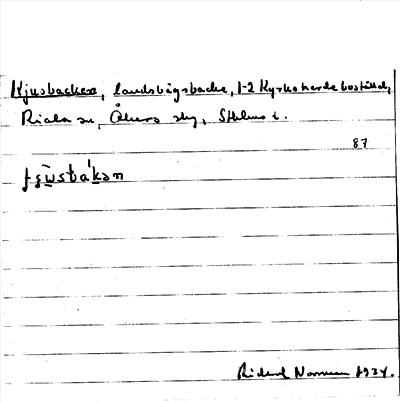 Kjusbacken, landsvägsbacke, 1-2 Kyrkoherdebostället,
Riala sn, Åkers skg, Sthlms l.
87
Rickard Norman 1934.